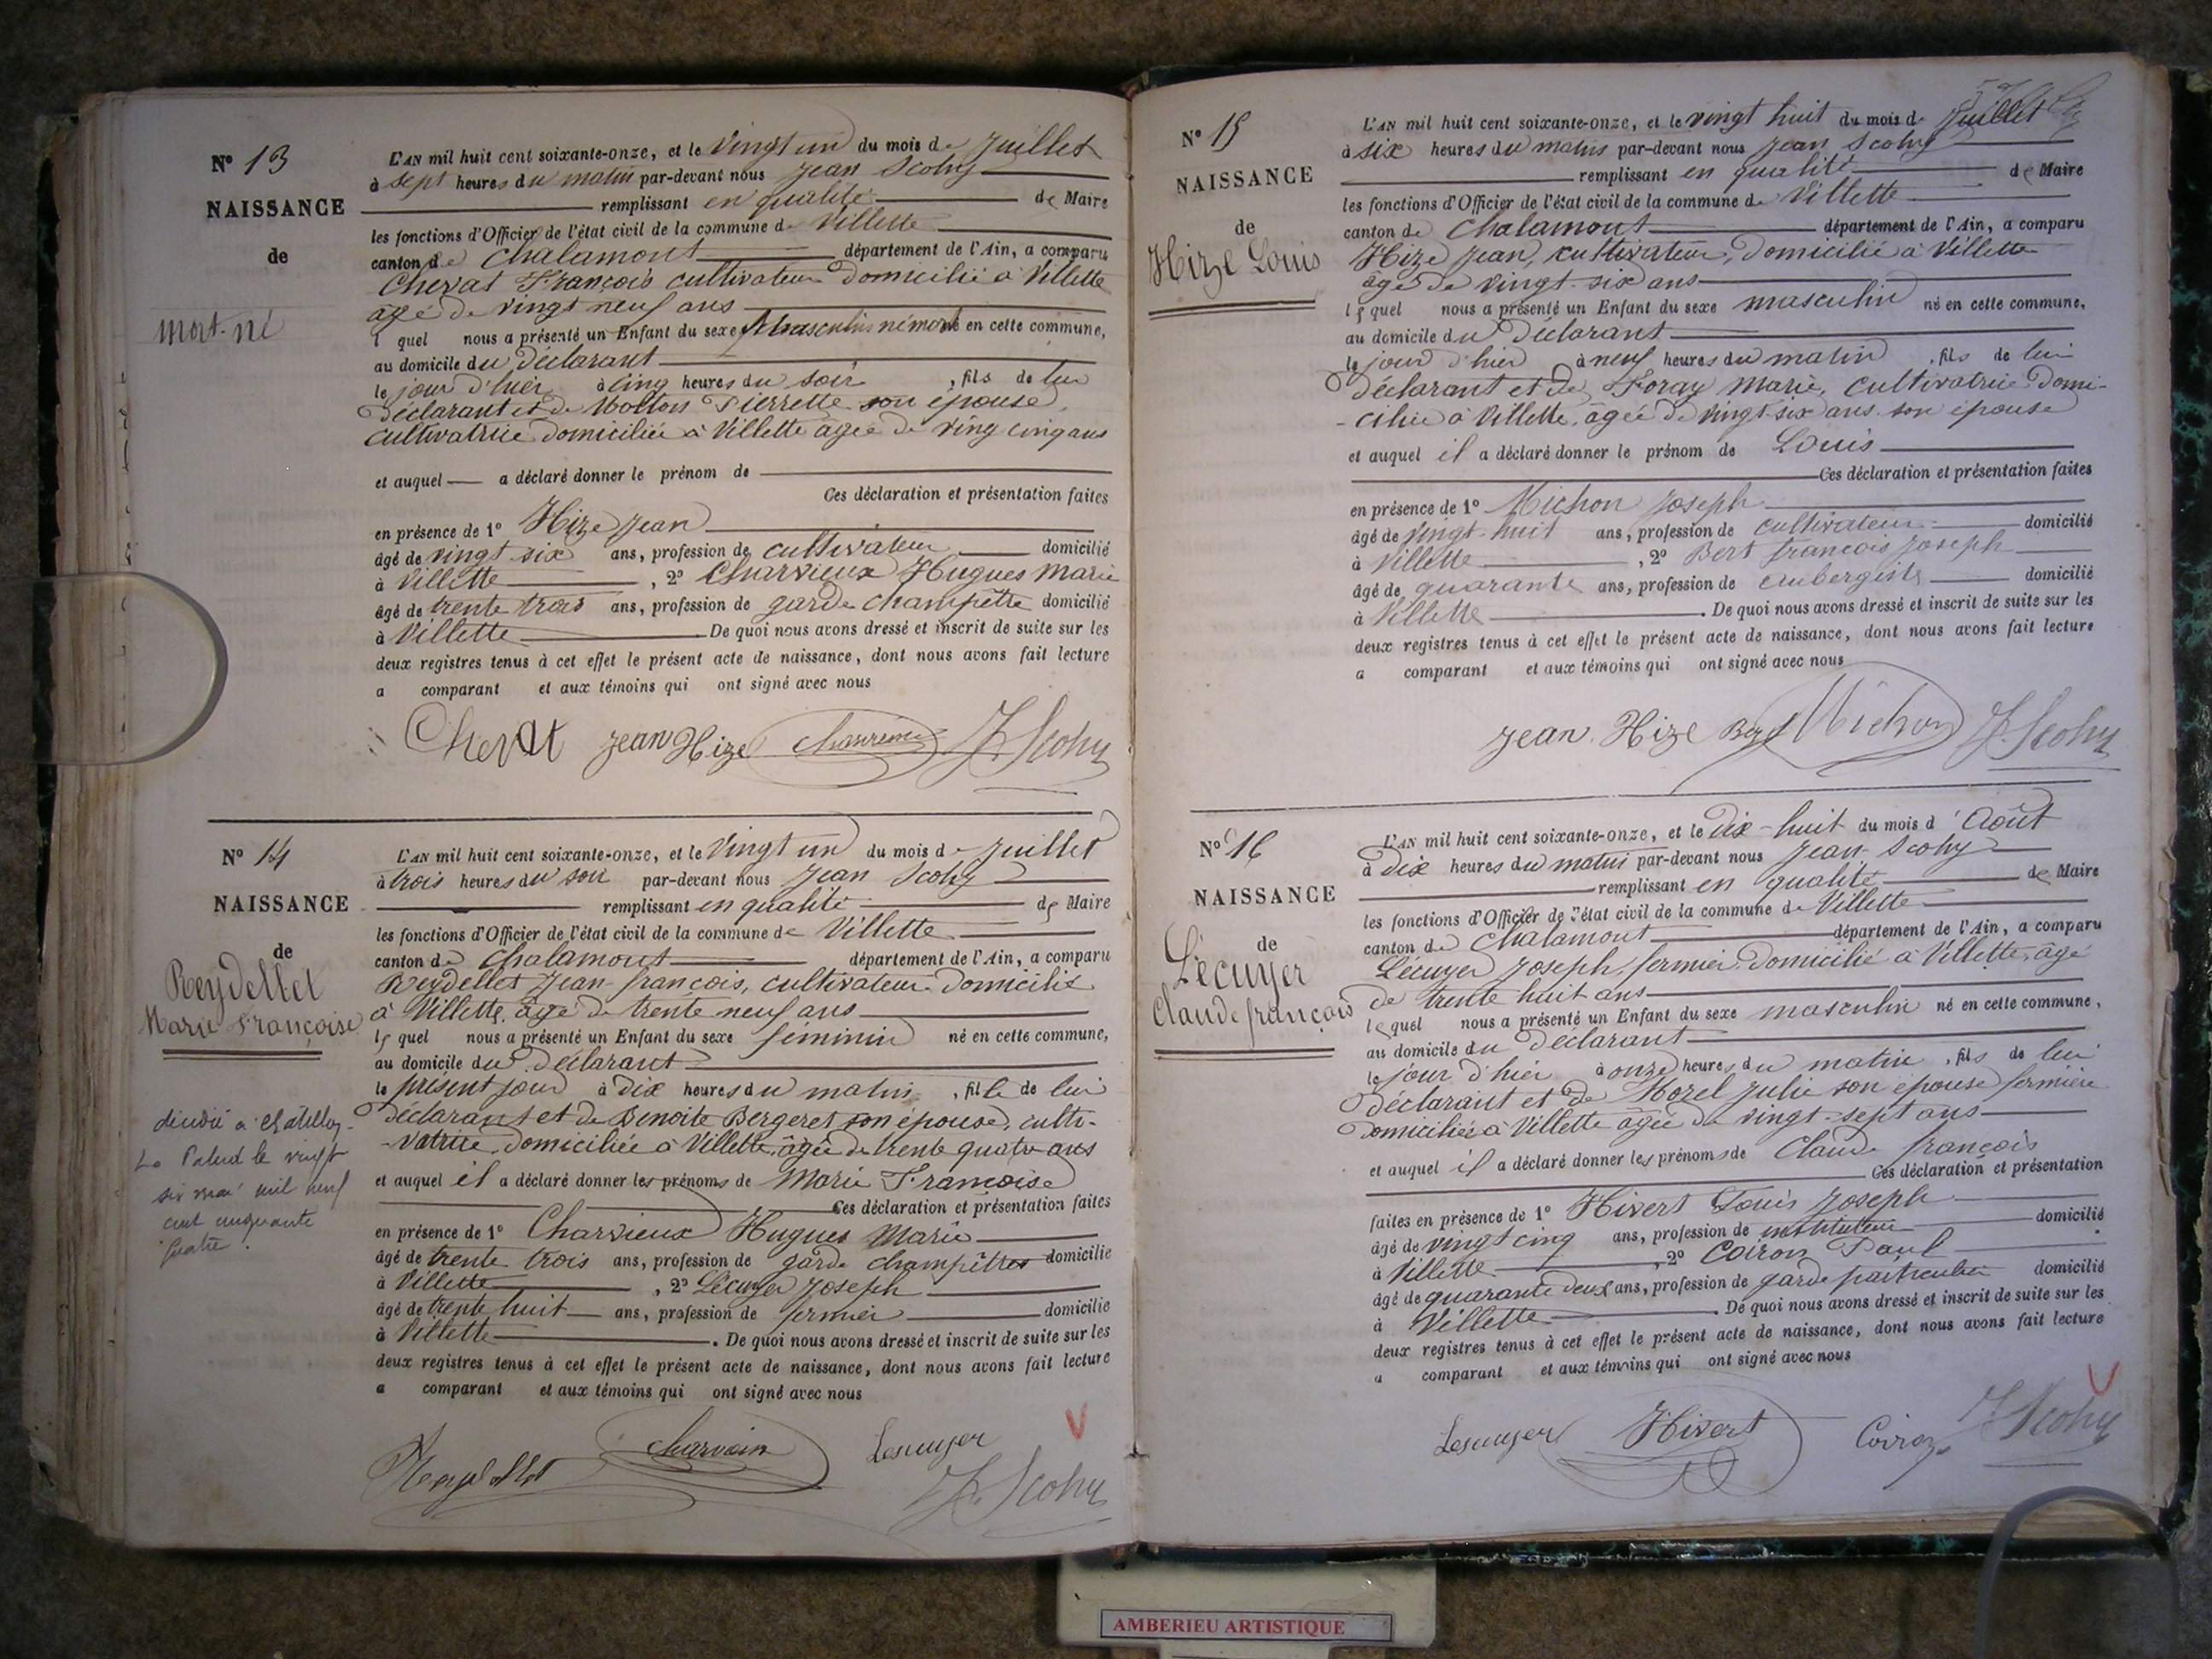 N° 13
NAISSANCE
de
mort-né
L'AN mil huit cent soixante-onze, et le vingt un du mois de Juillet
à sept heures du matin par-devant nous Jean Scohy
remplissant en qualité de Maire
les fonctions d'Officier de l'état civil de la commune de Villette
canton de Chalamont département de l'Ain, a comparu
Chevat François cultivateur domicilié à Villette
âgé de vingt neuf ans
l quel nous a présenté un Enfant du sexe Masculin né mort en cette commune,
au domicile du déclarant
le jour d'hier à cinq heures du soir, fils de lui
déclarant et de Pierrette son épouse
cultivatrice domiciliée à Villette agée de ving cinq ans
et auquel a déclaré donner le prénom de
Ces déclaration et présentation faites
en présence de 1° Hize Jean
âgé de vingt six ans, profession de cultivateur domicilié
à Villette, 2° Charvieux Hugues Marie
âgé de trente trois ans, profession de garde champêtre domicilié
à Villette De quoi nous avons dressé et inscrit de suite sur les
deux registres tenus à cet effet le présent acte de naissance, dont nous avons fait lecture
a comparant et aux témoins qui ont signé avec nous
Chevat Jean Hize Charvieux J. Scohy
N° 14
NAISSANCE
de
Reydellet
Marie Françoise
L'AN mil huit cent soixante-onze, et le vingt un du mois de Juillet
à trois heures du soir par-devant nous Jean Scohy
remplissant en qualité de Maire
les fonctions d'Officier de l'état civil de la commune de Villette
canton de Chalamont département de l'Ain, a comparu
Reydellet Jean-françois, cultivateur domicilié
à Villette, âgé de trente neuf ans
le quel nous a présenté un Enfant du sexe féminin né en cette commune,
au domicile du déclarant
le présent jour à dix heures du matin, fille de lui
déclarant et de Benoite Bergeret son épouse, culti-
-vatrice domiciliée à Villette, âgée de trente quatre ans
et auquel il a déclaré donner les prénoms de Marie Françoise
Ces déclaration et présentation faites
en présence de 1° Charvieux Hugues Marie
âgé de trente trois ans, profession de garde champêtre domicilié
à Villette, 2° Lécuyer Joseph
âgé de trente huit ans, profession de fermier domicilié
à Villette. De quoi nous avons dressé et inscrit de suite sur les
deux registres tenus à cet effet le présent acte de naissance, dont nous avons fait lecture
a comparant et aux témoins qui ont signé avec nous
décédée à Châtillon-
La Palud le vingt
six mai mil neuf
cent cinquante
quatre.
Reydellet Lescuyer
J. Scohy
N° 15
NAISSANCE
de
Hize Louis
L'AN mil huit cent soixante-onze, et le vingt huit du mois de Juillet
à six heures du matin par-devant nous Jean Scohy
remplissant en qualité de Maire
les fonctions d'Officier de l'état civil de la commune de Villette
canton de Chalamont département de l'Ain, a comparu
Hize Jean, cultivateur, domicilié à Villette
âgé de vingt-six ans
le quel nous a présenté un Enfant du sexe masculin né en cette commune,
au domicile du déclarant
le jour d'hier à neuf heures du matin, fils de lui
déclarant et de Foray Marie, cultivatrice domi-
-ciliée à Villette, âgée de vingt-six ans son épouse
et auquel il a déclaré donner le prénom de Louis
Ces déclaration et présentation faites
en présence de 1° Michon Joseph
âgé de vingt-huit ans, profession de cultivateur domicilié
à Villette, 2° Bert françois Joseph
âgé de quarante ans, profession de aubergiste domicilié
à Villette. De quoi nous avons dressé et inscrit de suite sur les
deux registres tenus à cet effet le présent acte de naissance, dont nous avons fait lecture
a comparant et aux témoins qui ont signé avec nous
Jean Hize Bert Michon J. Scohy
N° 16
NAISSANCE
de
Lécuyer
Claude françois
L'AN mil huit cent soixante-onze, et le dix-huit du mois d'Août
à dix heures du matin par-devant nous Jean Scohy
remplissant en qualité de Maire
les fonctions d'Officier de l'état civil de la commune de Villette
canton de Chalamont département de l'Ain, a comparu
Lécuyer Joseph, fermier domicilié à Villette, âgé
de trente huit ans
lequel nous a présenté un Enfant du sexe masculin né en cette commune,
au domicile du déclarant
le jour d'hier à onze heures du matin, fils de lui
déclarant et de Morel Julie son épouse fermière
domiciliée à Villette âgée de vingt-sept ans
et auquel il a déclaré donner les prénoms de Claude françois
Ces déclaration et présentation
faites en présence de 1° Hivert Louis Joseph
âgé de vingt cinq ans, profession de instituteur domicilié
à Villette, 2° Coiron Paul
âgé de quarante deux ans, profession de garde particulier domicilié
à Villette. De quoi nous avons dressé et inscrit de suite sur les
deux registres tenus à cet effet le présent acte de naissance, dont nous avons fait lecture
a comparant et aux témoins qui ont signé avec nous
Lescuyer Hivert Coiron J. Scohy
AMBERIEU ARTISTIQUE